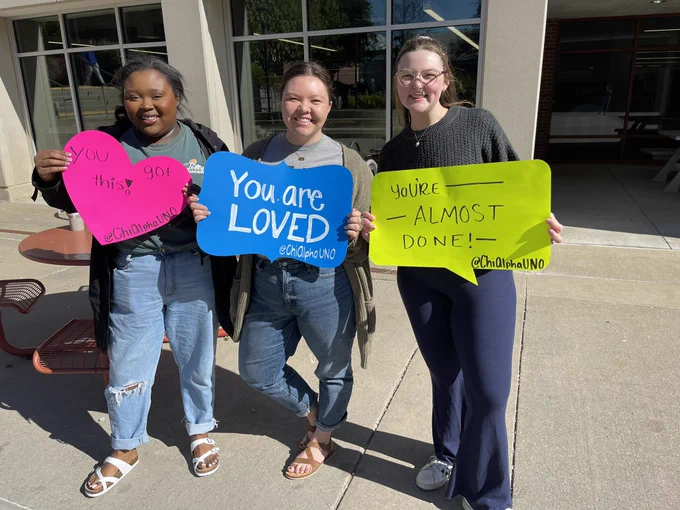 YOU got
this!
@ChiAlphaUNO
You are
LOVED
@ChiAlphaUNO
YOU'RE
ALMOST
DONE!
@ChiAlphaUNO